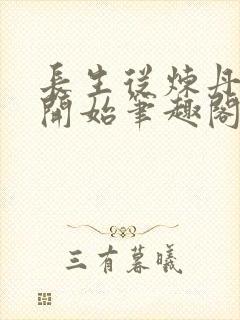 長生從煉丹
開始筆趣閣
三有暮曦